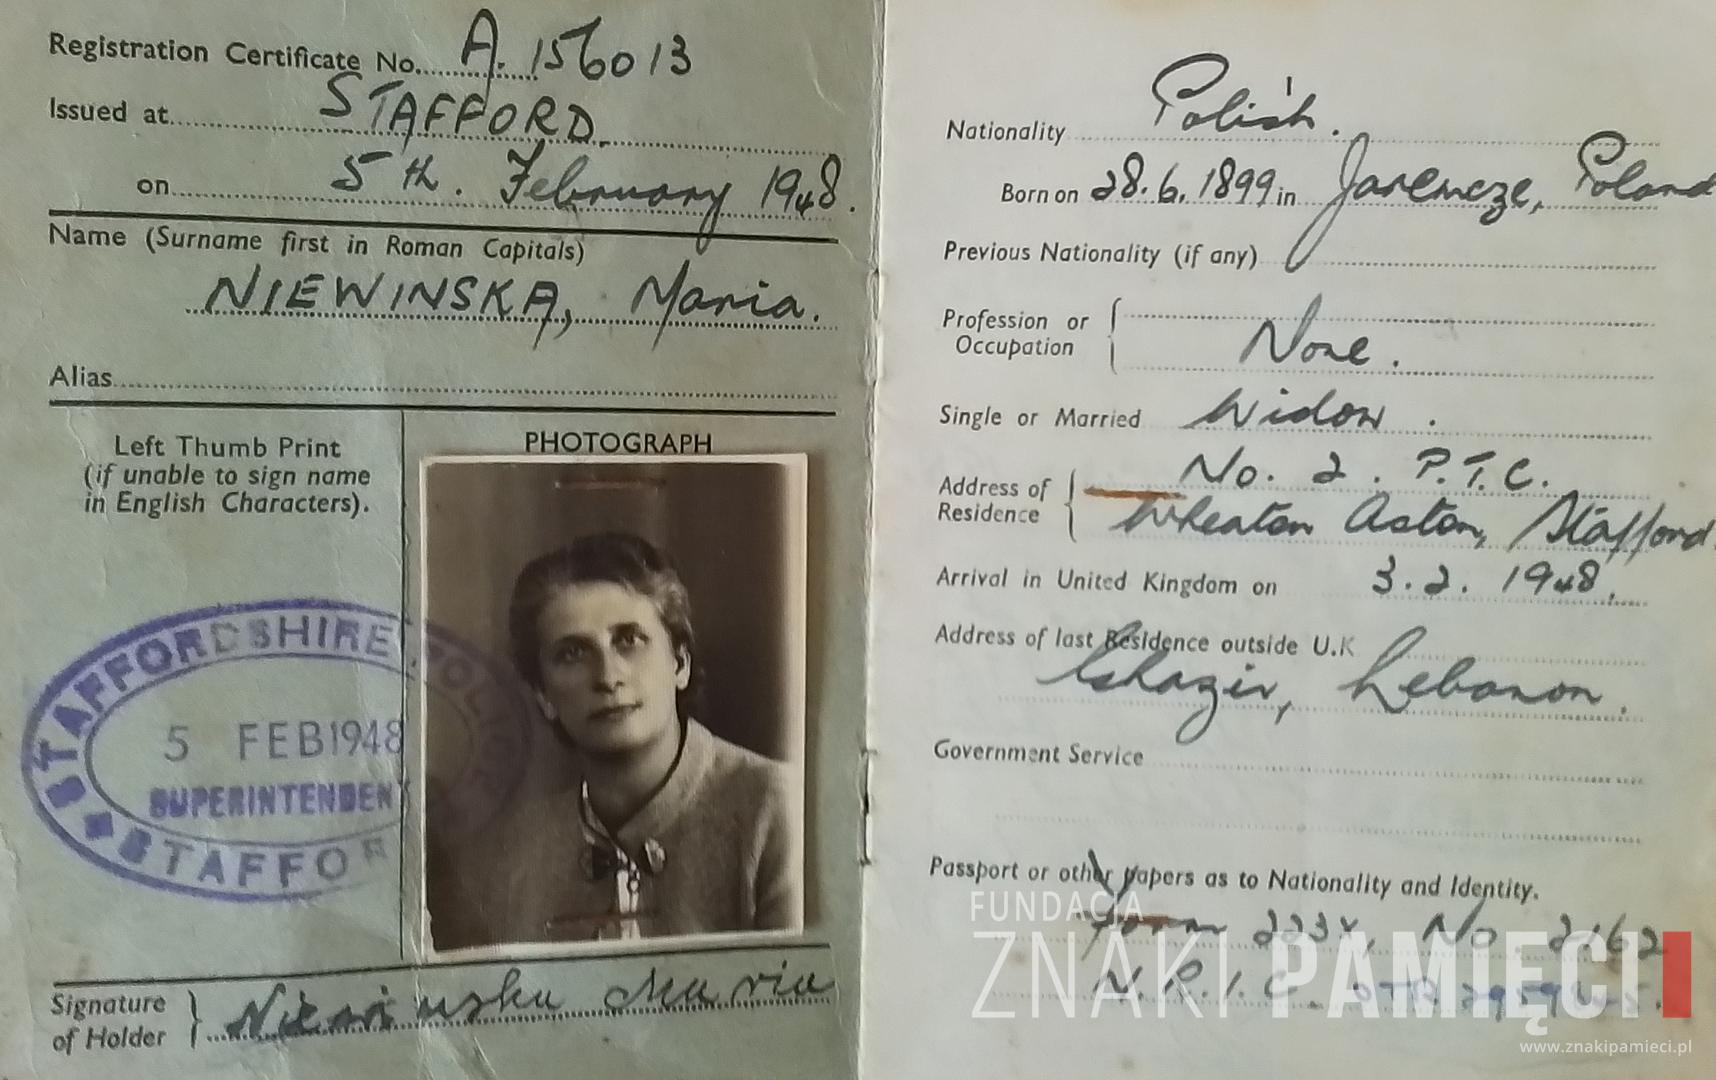 Registration Certificate No. A. 156013
Issued at STAFFORD.
on 5th. February 1948.
Name (Surname first in Roman Capitals)
NIEWINSKA, Maria.
Alias
Left Thumb Print
(if unable to sign name
in English Characters).
PHOTOGRAPH
STAFFORDSHIRE POLICE
5 FEB 1948
SUPERINTENDEN
STAFFOR
Signature
of Holder
Niewińska Maria
Nationality Polish.
Born on 28.6.1899 in Jaremcze, Poland
Previous Nationality (if any)
Profession or
Occupation None.
Single or Married Widow.
Address of
Residence
No. 2. P.T.C.
Wheaton Aston, Stafford.
Arrival in United Kingdom on 3.2.1948.
Address of last Residence outside U.K
Ghazir, Lebanon.
Government Service
Passport or other papers as to Nationality and Identity.
Form No. 2162
N.R.I.C.
FUNDACJA
ZNAKI PAMIĘCI
www.znakipamieci.pl